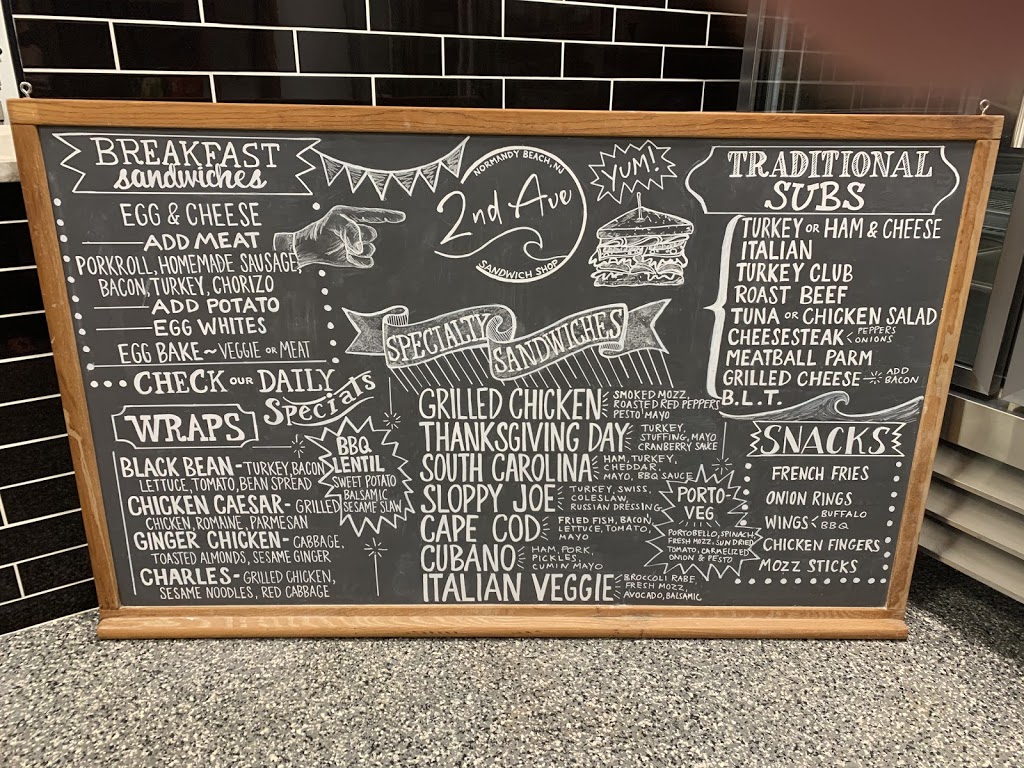 BREAKFAST
sandwiches
EGG & CHEESE
ADD MEAT
PORKROLL, HOMEMADE SAUSAGE,
BACON, TURKEY, CHORIZO
ADD POTATO
EGG WHITES
EGG BAKE ~ VEGGIE OR MEAT
CHECK OUR DAILY
Specials
WRAPS
BLACK BEAN - TURKEY, BACON
LETTUCE, TOMATO, BEAN SPREAD
CHICKEN CAESAR - GRILLED
CHICKEN, ROMAINE, PARMESAN
GINGER CHICKEN - CABBAGE,
TOASTED ALMONDS, SESAME GINGER
CHARLES - GRILLED CHICKEN,
SESAME NOODLES, RED CABBAGE
BBQ
LENTIL
SWEET POTATO
BALSAMIC
SESAME SLAW
NORMANDY BEACH, NJ
2nd Ave
SANDWICH SHOP
YUM!
SPECIALTY
SANDWICHES
GRILLED CHICKEN
SMOKED MOZZ,
ROASTED RED PEPPERS
PESTO MAYO
THANKSGIVING DAY
TURKEY,
STUFFING, MAYO
CRANBERRY SAUCE
SOUTH CAROLINA
HAM, TURKEY,
CHEDDAR,
MAYO, BBQ SAUCE
SLOPPY JOE
TURKEY, SWISS,
COLESLAW,
RUSSIAN DRESSING
CAPE COD
FRIED FISH, BACON,
LETTUCE, TOMATO,
MAYO
CUBANO
HAM, PORK,
PICKLES,
CUMIN MAYO
ITALIAN VEGGIE
BROCCOLI RABE,
FRESH MOZZ
AVOCADO, BALSAMIC
PORTO-
VEG
PORTOBELLO, SPINACH,
FRESH MOZZ, SUN DRIED
TOMATO, CARMELIZED
ONION & PESTO
TRADITIONAL
SUBS
TURKEY OR HAM & CHEESE
ITALIAN
TURKEY CLUB
ROAST BEEF
TUNA OR CHICKEN SALAD
CHEESESTEAK < PEPPERS
ONIONS
MEATBALL PARM
GRILLED CHEESE ADD
BACON
B.L.T.
SNACKS
FRENCH FRIES
ONION RINGS
WINGS < BUFFALO
BBQ
CHICKEN FINGERS
MOZZ STICKS